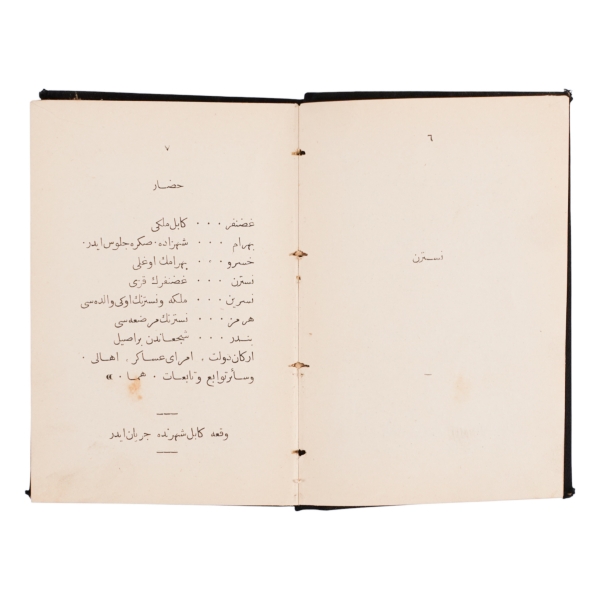 ٦
نسترن
٧
حضار
غضنفر . . . کابل ملکی
بهرام . . . شهزاده . صکره جلوس ایدر .
خسرو . . . بهرامك اوغلی
نسترن . . . غضنفرك قزی
نسرین . . . ملکه و نسترنك اوکی والده سی
هرمز . . . نسترنك مرضعه سی
بندر . . . شجعاندن بر اصیل
ارکان دولت ، امرای عساکر ، اهالی .
وسائر توابع و تابعات . هما . »
وقعه کابل شهرنده جریان ایدر